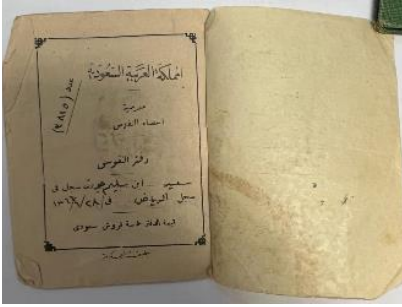 المملكة العربية السعودية
عدد (٣٨٢٥)
مديرية
احصاء النفوس
دفتر النفوس
ابن سليم سجل في
سجل الرياض في ٢٨/
قيمة الدفتر خمسة قروش سعودي